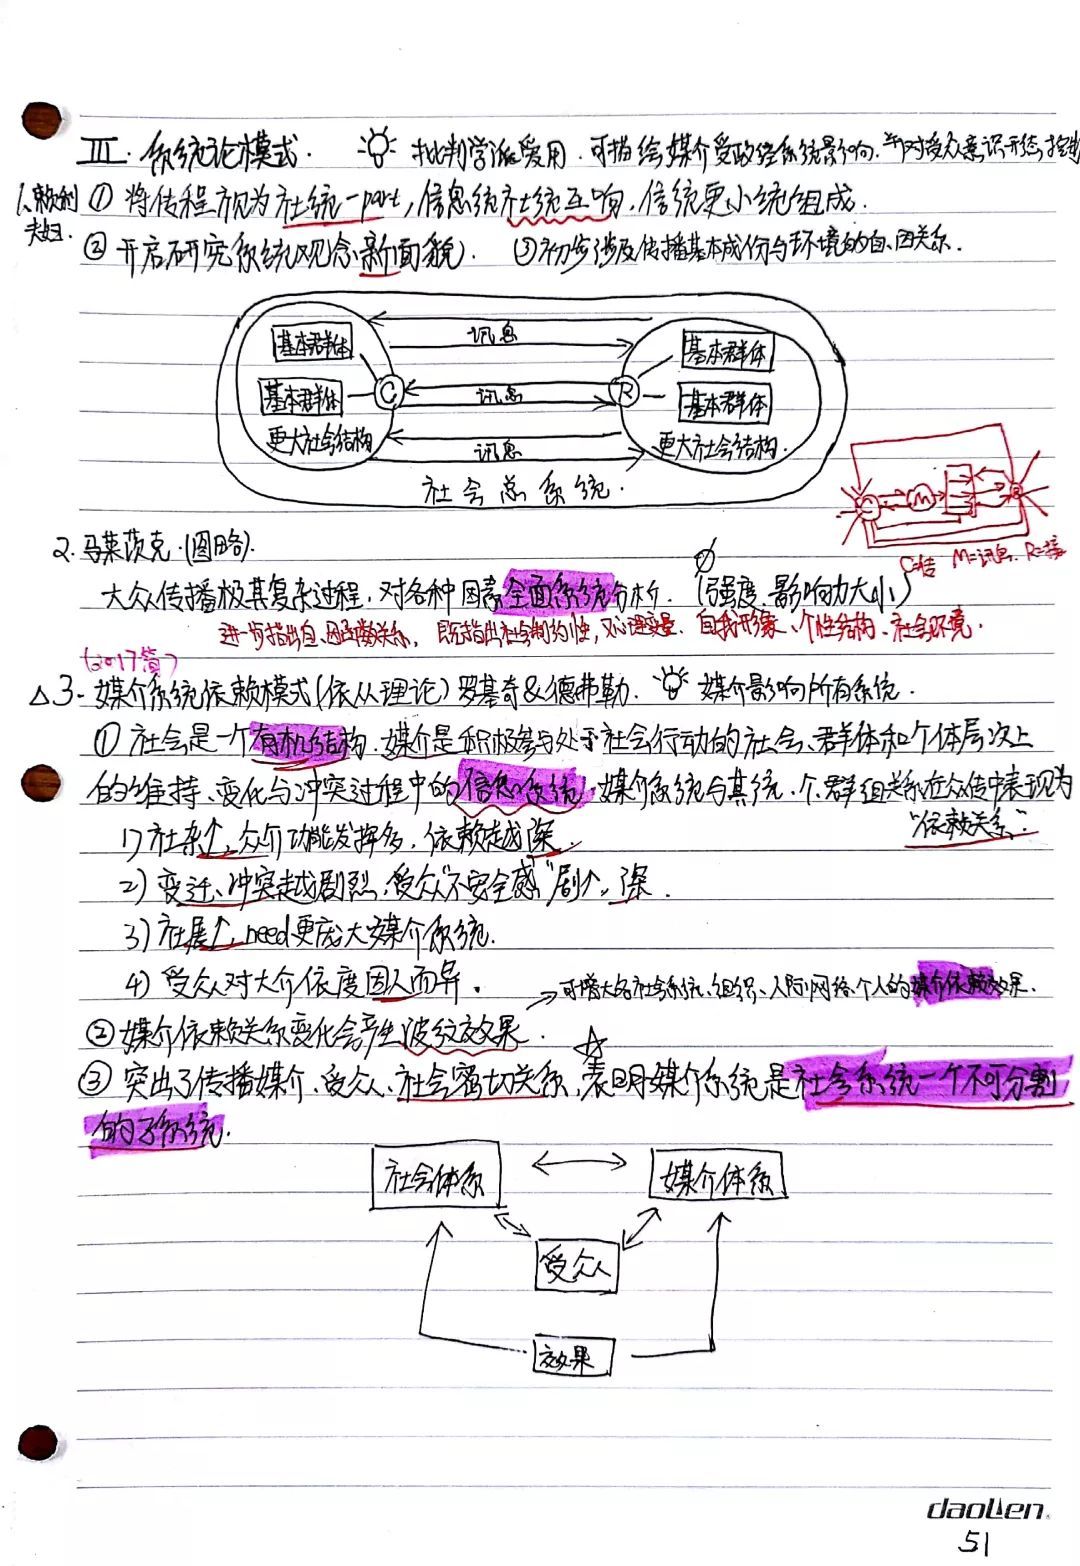 III. 系统论模式. 批判学派爱用. 可描绘媒介受政经系统影响. 对受众意识形态控制
1.赖利夫妇.
① 将传程视为社统一part, 信息统社统互响, 信统更小统组成.
② 开启研究系统观念新面貌. ③初步涉及传播基本成份与环境的自、因关系.
讯息
基本群体 基本群体
C 讯息 R
基本群体 基本群体
更大社会结构 讯息 更大社会结构.
社会总系统.
M
C=传 M=讯息. R=接
2.马莱茨克.(图略).
大众传播极其复杂过程. 对各种因素全面系统分析. (强度、影响力大小)
进一步指出自、因函数关系. 既指出社会制约性, 又心理变量. 自我形象、个性结构、社会环境.
(2017简)
△3-媒介系统依赖模式(依从理论) 罗基奇&德弗勒. 媒介影响所有系统.
① 社会是一个有机结构. 媒介是积极参与处于社会行动的社会、群体和个体层次上
的维持、变化与冲突过程中的信息系统. 媒介系统与其统、个、群、组关系在众传中表现为
"依赖关系".
1) 社杂↑, 众介功能发挥多, 依赖越深.
2) 变迁、冲突越剧烈. 受众"不安全感"剧↑, 深.
3) 社展↑, need更庞大媒介系统.
4) 受众对大介依度因人而异.
→可增大各社会系统、组织、人际网络、个人的媒介依赖效果.
② 媒介依赖关系变化会产生波纹效果. ☆
③ 突出了传播媒介、受众、社会密切关系, 表明媒介系统是社会系统一个不可分割
的子系统.
社会体系 媒介体系
受众
效果
daolen.
51